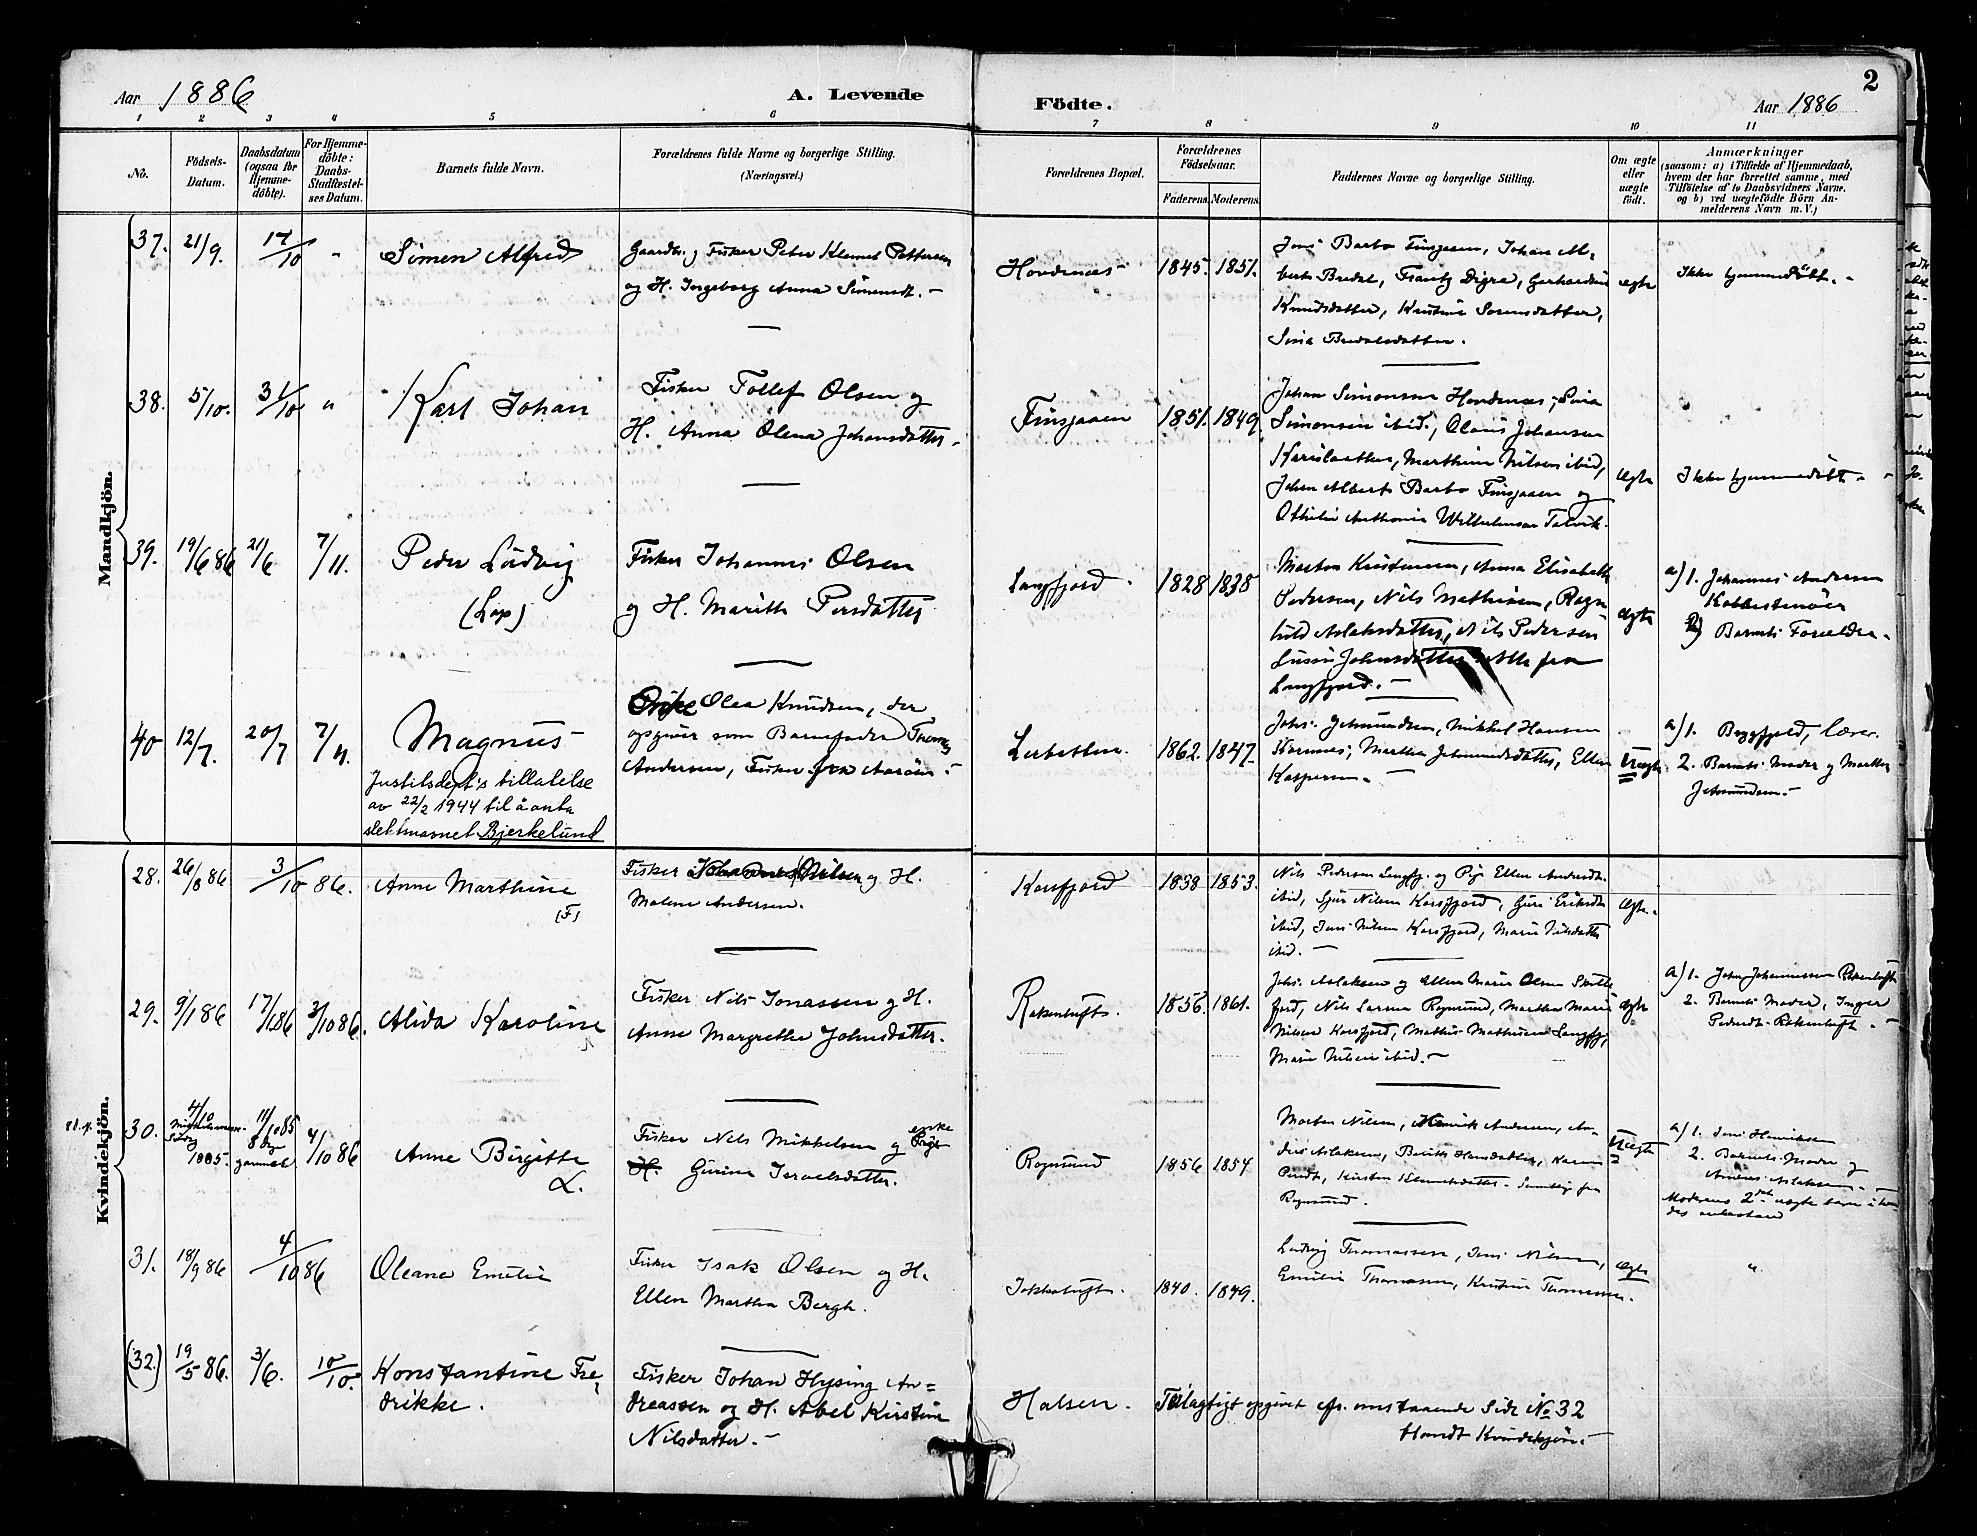 Aar 1886
A. Levende
Födte.
2
Aar 1886
1 2 3 4 5 6 7 8 9 10 11
No.
Födsels-
Datum.
Daabsdatum
(ogsaa for
Hjemme-
döbte).
For Hjemme-
döbte:
Daabs-
Stadfæstel-
ses Datum.
Barnets fulde Navn.
Forældrenes fulde Navne og borgerlige Stilling.
(Næringsvei.)
Forældrenes Bopæl.
Forældrenes
Födselsaar.
Faderens. Moderens.
Faddernes Navne og borgerlige Stilling.
Om ægte
eller
uægte
födt.
Anmærkninger
(saasom: a) i Tilfælde af Hjemmedaab,
hvem der har forrettet samme, med
Tilföielse af to Daabsvidners Navne.
og b) ved uægtefödte Börn An-
melderens Navn m. V.)
Mandkjön.
37. 21/9. 17/10 "
Simon Alfred
Gaardbr. og Fisker Peter Klemet Pettersen
og H. Ingeborg Anna Simonsdt. -
Hovdenæs
1845. 1851.
Jens Barbo Finsjaaen, Johan Al-
bert Bredal, Frantz Digra, Gerhardine
Knudsdatter, Kristine Sorensdatter,
Sina Bredalsdatter.
ægte
Ikke hjemmedöbt. -
38. 5/10. 31/10 "
Karl Johan
Fisker Tollef Olsen og
H. Anna Olena Johansdatter -
Finsjaaen
1851. 1849.
Johan Simonsen Hovdenæs, Sina
Simonsen ibid., Olaus Johansen
Marthine Nilsen ibid,
Johan Albert Barbo Finsjaaen og
Othilie Anthonie Wilhelmsen Talvik.
ægte
Ikke hjemmedöbt - -
39. 19/6 86 21/6 7/11.
Peder Ludvig
(Lap)
Fisker Johannes Olsen
og H. Marith Persdatter
Langfjord.
1828 1838
Morten Kristensen, Anna Elisabeth
Pedersen, Nils Mathisen, Ragn
hild Aslaksdatter, Nils Pedersen
Johnsdatter Alle fra
Langfjord. -
ægte
a) 1. Johannes Andersen
2) Barnets Forældre -
40 12/7. 20/7 7/11.
Magnus
Justitsdept's tillatelse
av 22/2 1944 til å anta
slektsnavnet Bjerkelund
Olea Knudsen, der
opgiver som Barnefader Thomas
Andersen, Fisker fra Aaröen -
Lerbotten.
1862. 1847.
Johs. Johnsen, Mikkel Hansen
Martha Ellen
Kaspersen. -
Uægte
a) 1. Boggfjeld, lærer.
2. Barnets Moder og Martha
Kvindekjön.
28. 26/8 86 3/10 86.
Anne Marthine
(F)
Fisker Johannes Nilsen og H.
Malene Andersen.
Korsfjord
1838 1853.
Nils Pedersen Langfj. og Pige Ellen Andersdt.
ibid, Sjur Nilsen Korsfjord, Guri Eriksdt.
ibid, Jens Nilsen Korsfjord, Marie Nilsdatter
ibid. -
ægte.
29. 9/1 86 17/1 86 3/10 86.
Alida Karoline
Fisker Nils Jonassen og H.
Anne Margrethe Johnsdatter.
Rakenluft.
1856. 1861.
Johs. Aslaksen og Ellen Marie Olsen Stille
fjord, Nils Larsen Rognsund, Marthe Marie
Nilsen Korsfjord, Mathis Mathisen Langfj,
Marie Nilsen ibid. -
ægte
a) 1. John Johannessen Rakenluft
2. Barnets Moder, Inger
Pedersdt. Rakenluft. -
30. 4/10
1885.
11/10 85
8 Dage
gammel
4/10 86
Anne Birgitte
L.
Fisker Nils Mikkelsen og enke
H. Gurine Israelsdatter.
Rognsund
1856 1854
Morten Nilsen, Henrik Andersen, An-
ders Aslaksen, Berith Hansdatter, Karen
Persdt, Kirsten Klemetsdatter. Samtlige fra
Rognsund. -
Uægte
a) 1. Jens Henriksen
2. Barnets Moder og
Anders Aslaksen. -
Moderens 2det uægte barn i hen-
des enkestand
31. 18/9 86 4/10 86
Oleane Emelie
Fisker Isak Olsen og H.
Ellen Martha Bergh.
Jokkaluft.
1840. 1849.
Ludvig Thomassen, Jens Nilsen,
Emilie Thomassen, Kristine Thomassen.
ægte
"
(32.) 19/5 86. 3/6. 10/10.
Konstantine Fre-
drikke.
Fisker Johan Hysing An=
dreassen og H. Abel Kirstine
Nilsdatter. -
Halsen.
Feilagtigt opgivet cfr. omstaaende Side No 32
blandt Kvindekjön. -